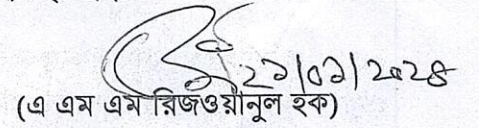 ২১/০১/২০২৪
(এ এম এম রিজওয়ানুল হক)